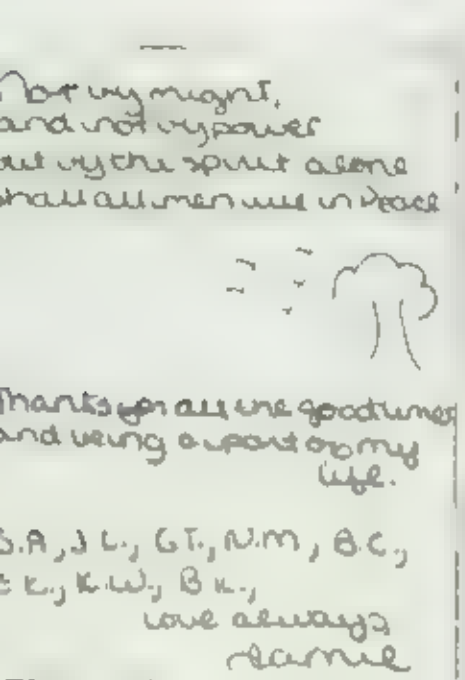 Not by might,
and not by power
but by the spirit alone
shall all men live in Peace
Thanks for all the goodtimes
and being a part of my
life.
S.A, J L., G T., N.M, B.C.,
K., K.W., B K.,
Love always,